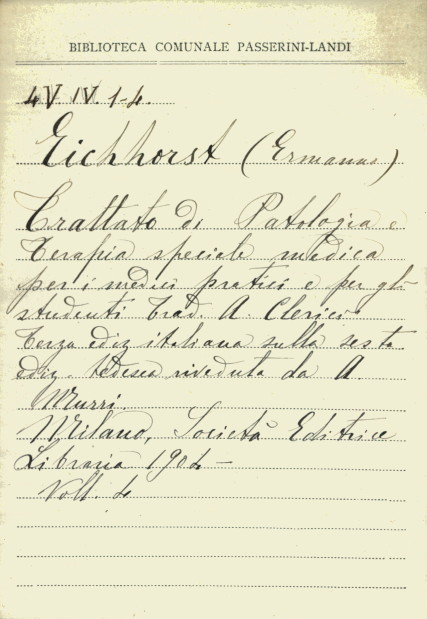 BIBLIOTECA COMUNALE PASSERINI-LANDI
4V IV 1-4.
Eichhorst (Ermanno)
Trattato di Patologia e
Terapia speciale medica
per i medici pratici e per gli
studenti Trad. A. Clerici
Terza ediz italiana sulla sesta
ediz. tedesca riveduta da A.
Murri
Milano, Società Editrice
Libraria 1904 –
Voll. 4